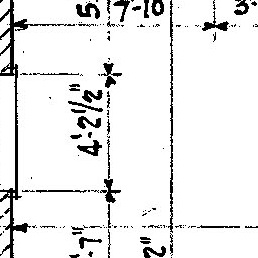 5
7-10
3-
4'-2 1/2"
'-7"
2"